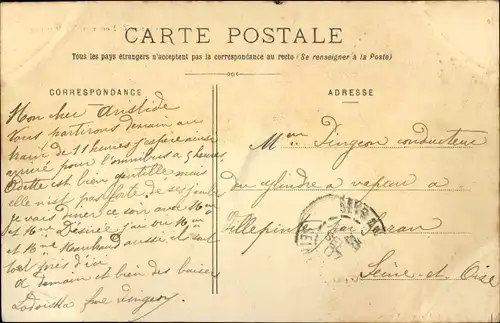 CARTE POSTALE
Tous les pays étrangers n'acceptent pas la correspondance au recto (Se renseigner à la Poste)
CORRESPONDANCE
Mon cher Aristide
Nous partirons demain au
train de 11 heures j'espère ainsi
arrivé pour l'omnibus a 5 heures
Odette est bien gentille mais
elle n'est pas forte de ses
je vais diner ce soir avec Mme
et Mme Désirée j'ai vu Mr
et Mme Marchand aussi il sont
tout près d'ici
A demain et bien des baisers
Lodoiska fme Pingeon
ADRESSE
Mr Pingeon conducteur
du cylindre a vapeur a
Villepinte par Sevran
Seine-et-Oise